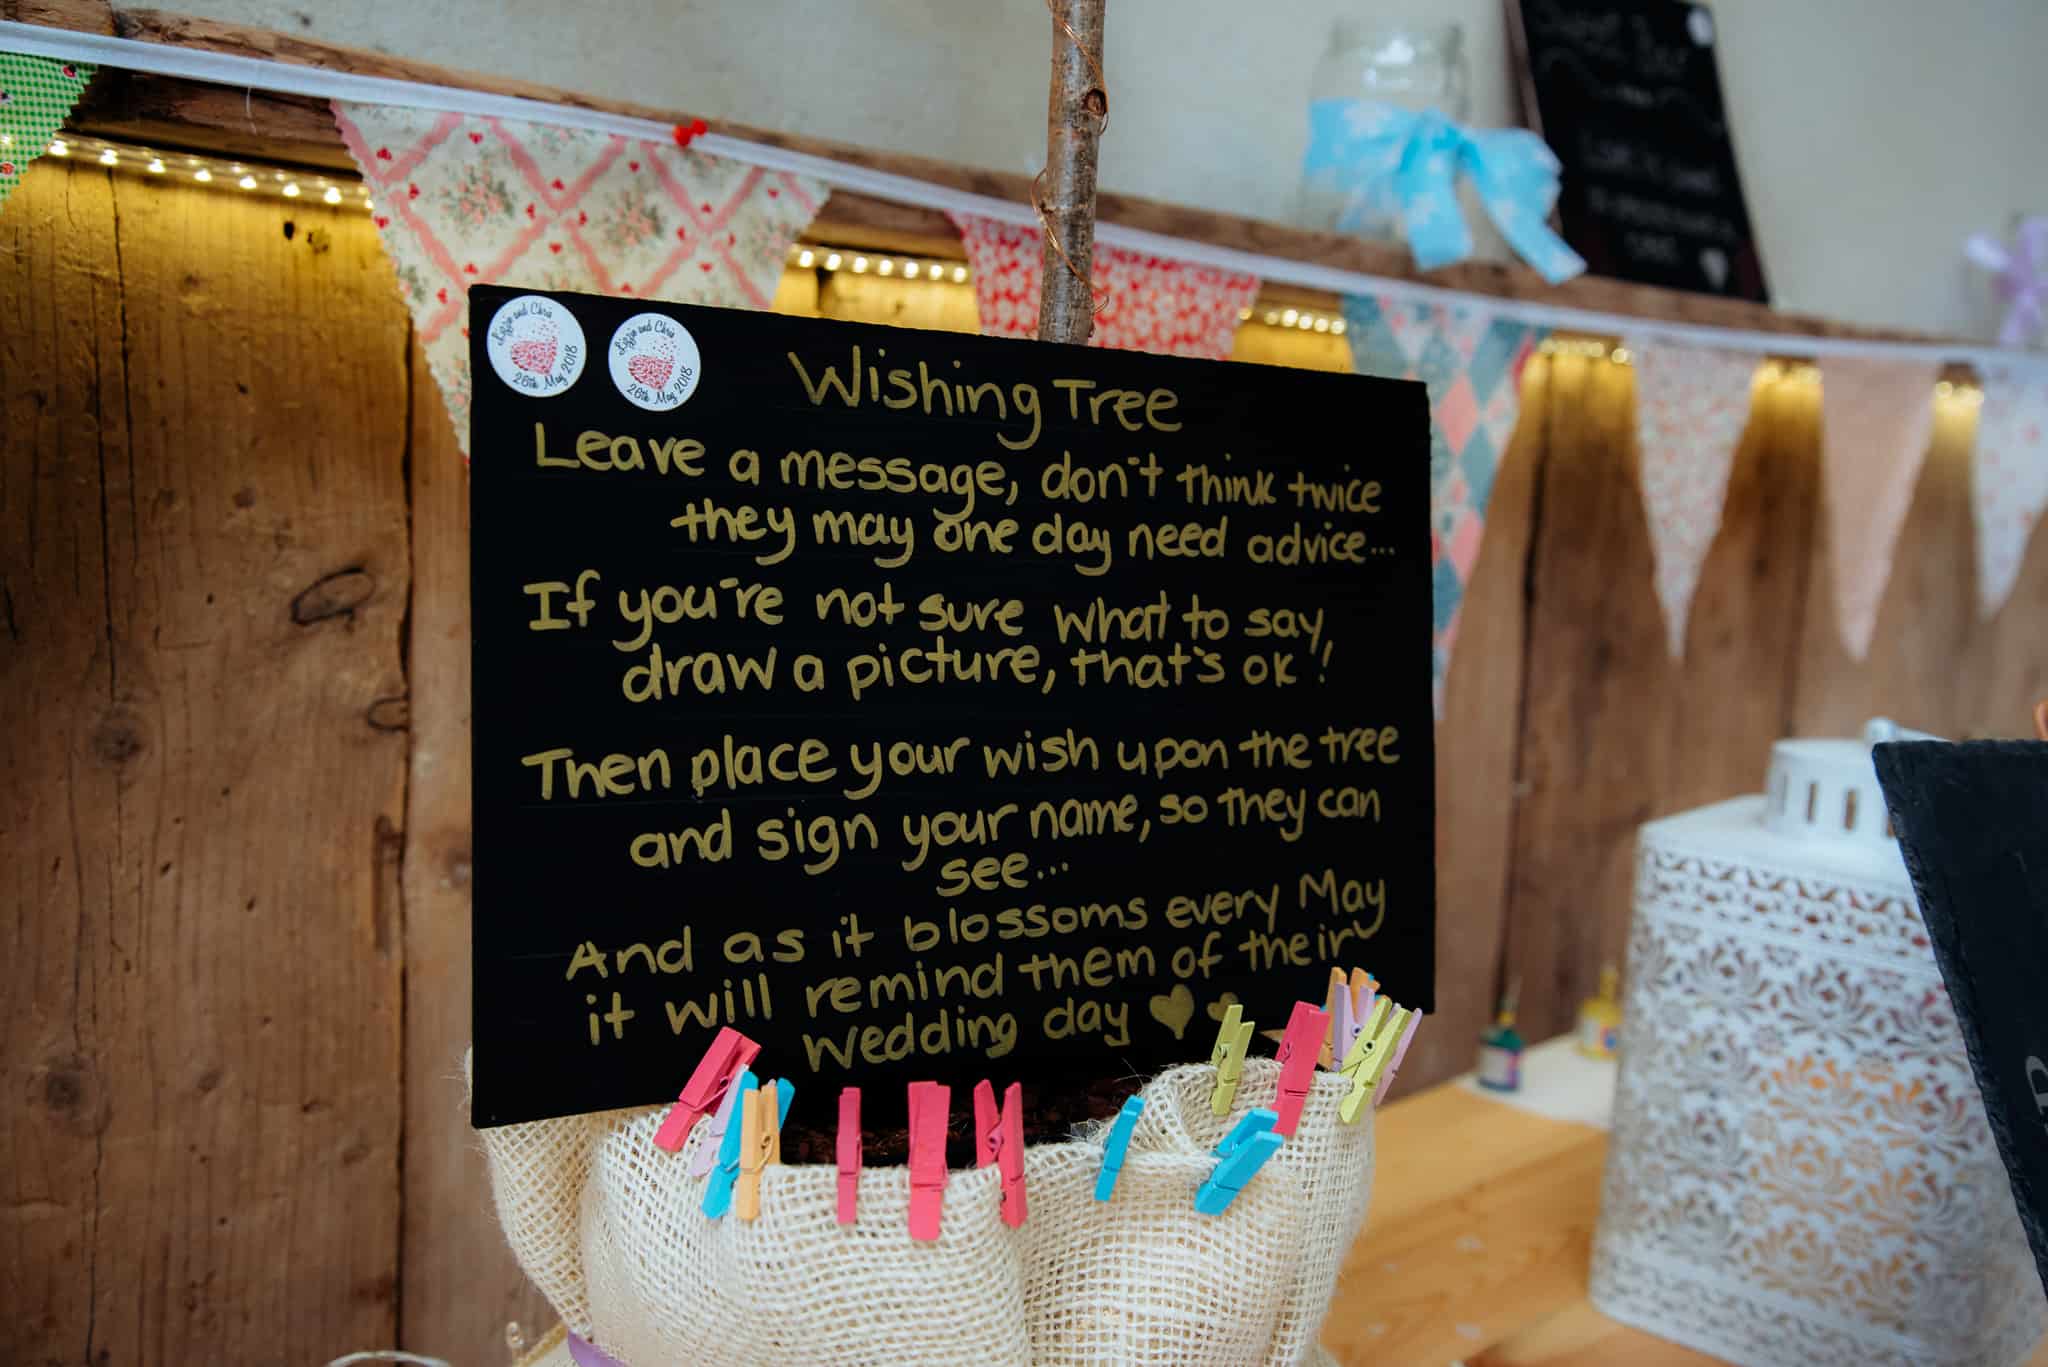 Lizzie and Chris
26th May 2018
Lizzie and Chris
26th May 2018
Wishing Tree
Leave a message, don't think twice
they may one day need advice...
If you're not sure what to say,
draw a picture, that's ok!
Then place your wish upon the tree
and sign your name, so they can
see...
And as it blossoms every May
it will remind them of their
wedding day